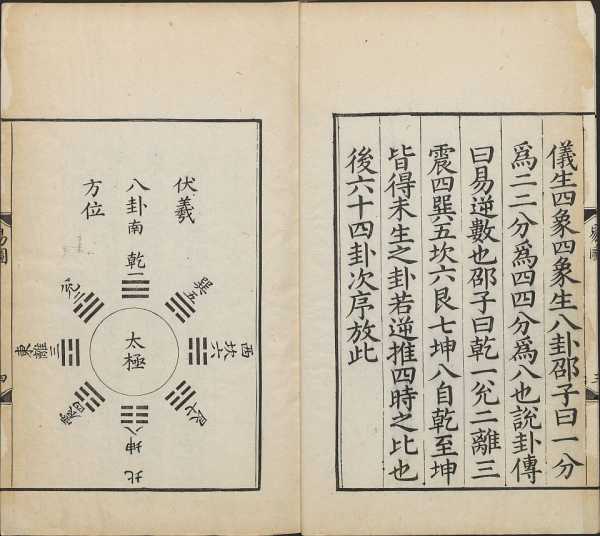 儀生四象四象生八卦邵子曰一分
爲二二分爲四四分爲八也說卦傳
曰易逆數也邵子曰乾一兊二離三
震四巽五坎六艮七坤八自乾至坤
皆得未生之卦若逆推四時之比也
後六十四卦次序放此
伏羲
八卦
方位
南
乾一
巽五
西
坎六
艮七
坤八
北
震四
東
離三
兊二
太極
易圖
四